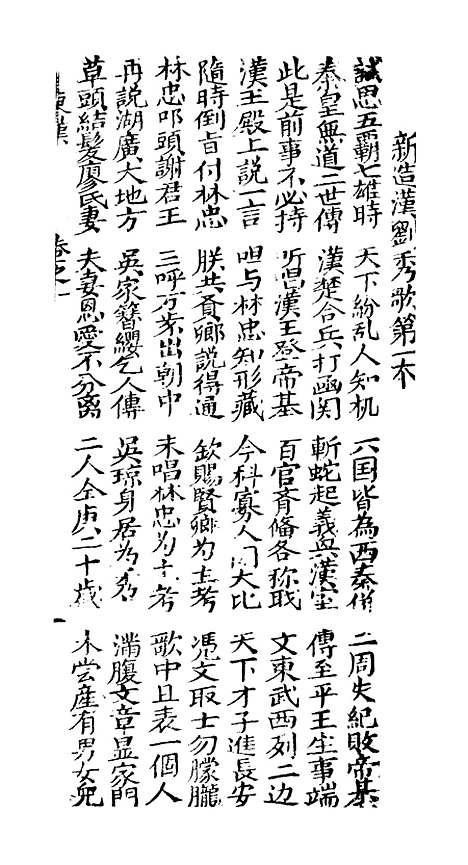 新造漢劉秀歌第一本
試思五霸七雄時 天下紛乱人知机 六国皆為西秦僣 二周失紀敗帝基
秦皇無道二世傳 漢楚合兵打凾関 斬蛇起義兴漢室 傳至平王生事端
此是前事不必持 听唱漢王登帝基 百官斉俻各称耺 文東武西列二边
漢王殿上説一言 呾与林忠知形藏 今科寡人開大比 天下才子進長安
隨時倒旨付林忠 朕共賢卿説得通 欽賜賢卿为主考 憑文取士勿朦朧
林忠叩頭謝君王 三呼万岁出朝中 未唱林忠为主考 歌中且表一個人
再説湖廣大地方 吳家簪纓乞人傳 吳琼身居为秀 滿腹文章显家門
草頭結髮廖氏妻 夫妻恩愛不分离 二人仝庚二十歲 未嘗產有男女兒
卷之一 一